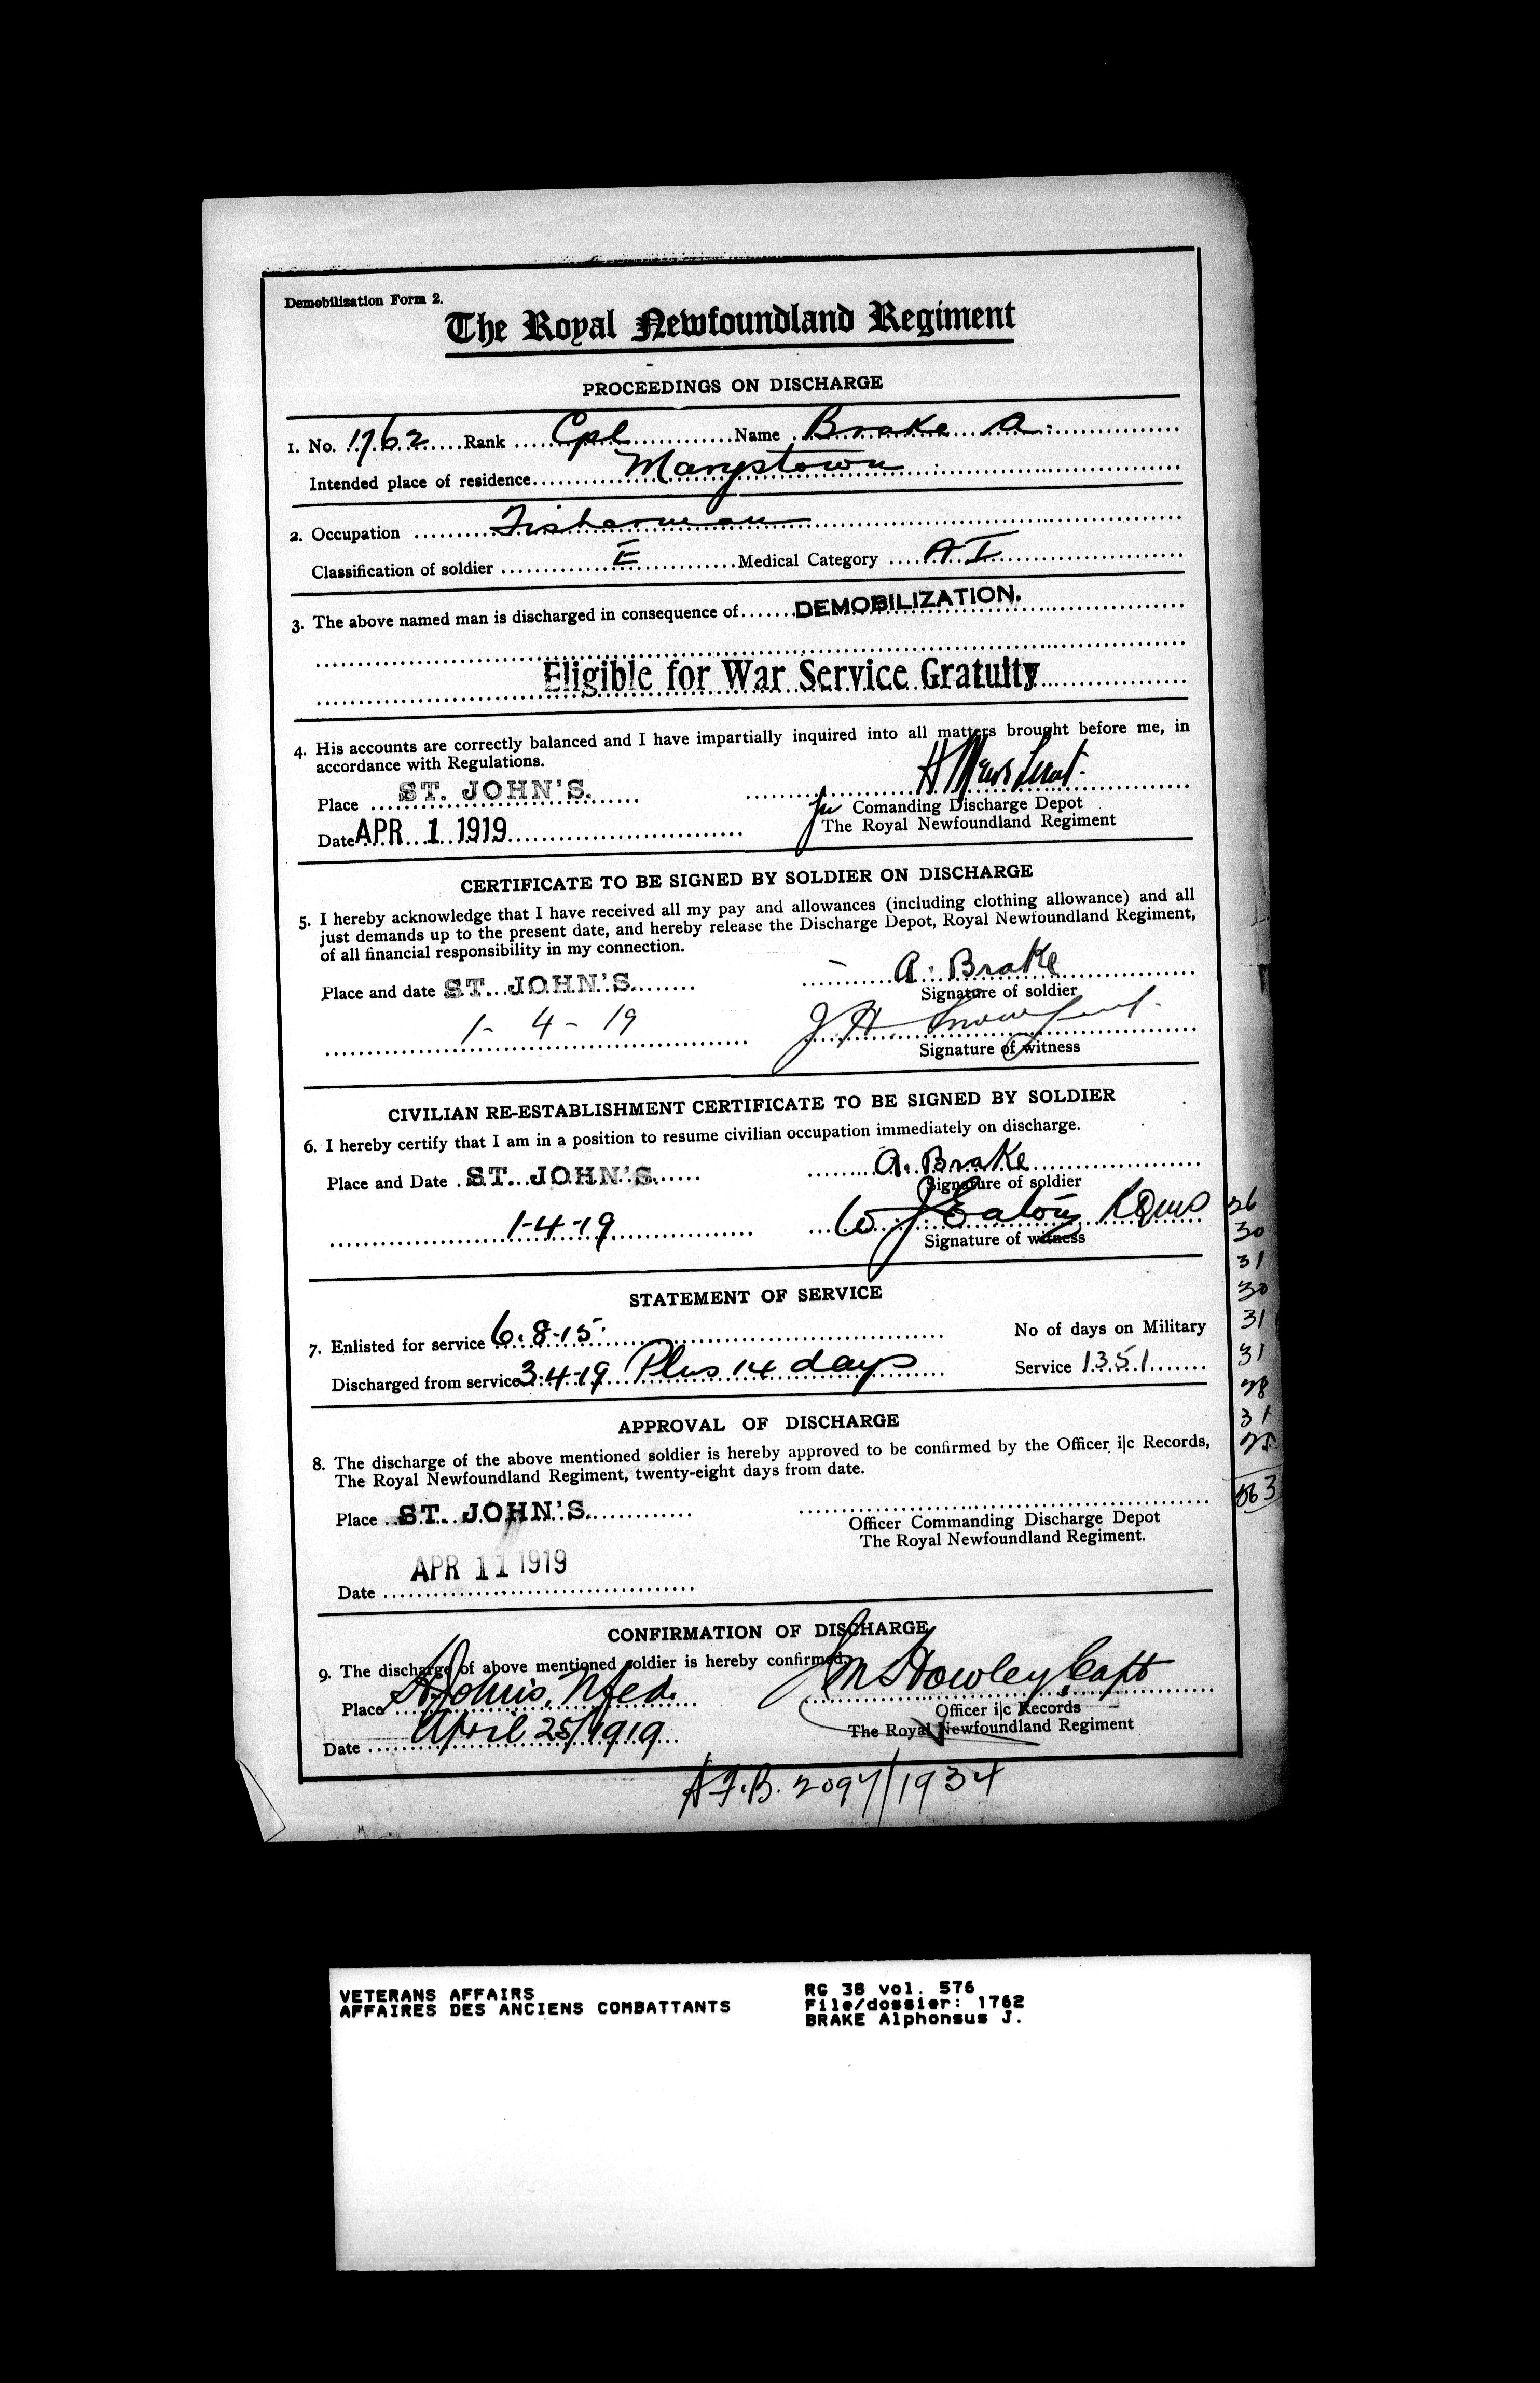 Demobilization Form 2.
The Royal Newfoundland Regiment
PROCEEDINGS ON DISCHARGE
1. No. 1762 Rank Cpl Name Brake A.
Intended place of residence Marystown
2. Occupation Fisherman
Classification of soldier E Medical Category A I
3. The above named man is discharged in consequence of DEMOBILIZATION.
Eligible for War Service Gratuity
4. His accounts are correctly balanced and I have impartially inquired into all matters brought before me, in
accordance with Regulations.
Place ST. JOHN'S.
for Comanding Discharge Depot
Date APR 1 1919
The Royal Newfoundland Regiment
CERTIFICATE TO BE SIGNED BY SOLDIER ON DISCHARGE
5. I hereby acknowledge that I have received all my pay and allowances (including clothing allowance) and all
just demands up to the present date, and hereby release the Discharge Depot, Royal Newfoundland Regiment,
of all financial responsibility in my connection.
A. Brake
Place and date ST. JOHN'S.
Signature of soldier
1- 4- 19
J H
Signature of witness
CIVILIAN RE-ESTABLISHMENT CERTIFICATE TO BE SIGNED BY SOLDIER
6. I hereby certify that I am in a position to resume civilian occupation immediately on discharge.
A. Brake
Place and Date ST. JOHN'S.
Signature of soldier
1-4-19
W J Eaton RQMS
Signature of witness
26
30
31
30
31
31
28
31
25
STATEMENT OF SERVICE
7. Enlisted for service 6.8.15. No of days on Military
Discharged from service 3.4.19 Plus 14 days Service 1351
APPROVAL OF DISCHARGE
8. The discharge of the above mentioned soldier is hereby approved to be confirmed by the Officer i|c Records,
The Royal Newfoundland Regiment, twenty-eight days from date.
Place ST. JOHN'S.
Officer Commanding Discharge Depot
The Royal Newfoundland Regiment.
APR 11 1919
Date
CONFIRMATION OF DISCHARGE
9. The discharge of above mentioned soldier is hereby confirmed.
Place St. John's, Nfld.
Howley, Capt
Officer i|c Records
Date April 25/1919
The Royal Newfoundland Regiment
A.F.B. 2097/1934
VETERANS AFFAIRS
AFFAIRES DES ANCIENS COMBATTANTS
RG 38 vol. 576
File/dossier: 1762
BRAKE Alphonsus J.